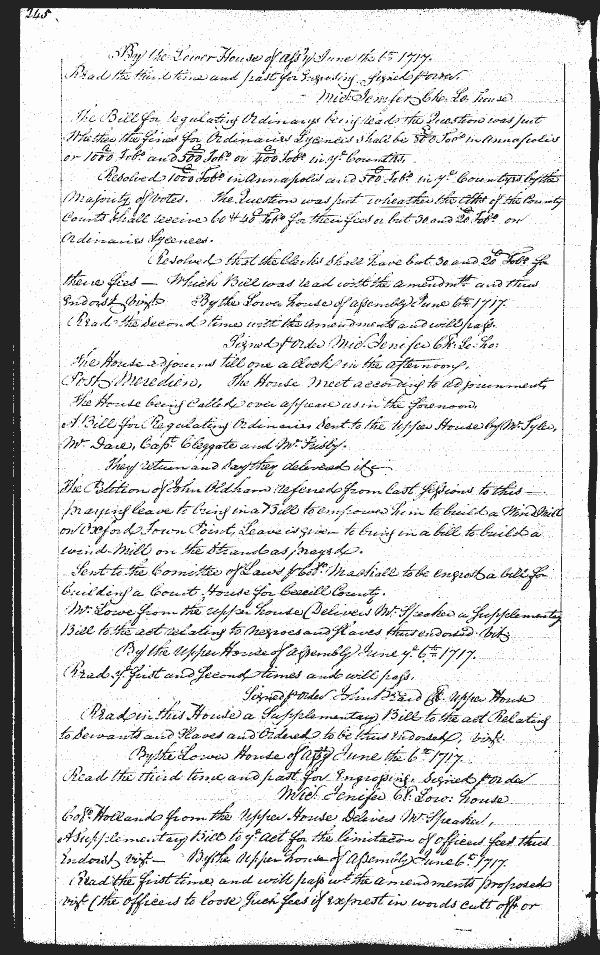 245
By the Lower House of Assly June the 6th 1717.
Read the third time and past for Engrosing signed p order.
Micl. Jenifer Clk. Lo. house
The Bill for regulating Ordinarys being read the Question was put
Whether the fines for Ordinaries Lycences shall be 800 Tobo. in Annapolis
or 1000 Tobo and 500 Tobo or 400 Tobo. in ye. Countrys.
Resolved 1000 Tobo in Annapolis and 500 Tobo. in ye. Countrys by the
Majority of votes. The Question was put wheather the Clks of the County
Courts shall receive 60 & 40 Tobo for their fees or but 30 and 20 Tobo. on
Ordinaries Lycences.
Resolved that the Clerks shall have but 30 and 20 Tobo for
theire fees — Which Bill was read with the amendmts and thus
Endorst vizt. By the Lower house of assembly June 6th. 1717.
Read the second time with the amendments and will pass.
Signed p Order Micl Jenifer Clk. Lo. Ho.
The House adjourns till one a Clock in the afternoon.
Post Meredien. The House meet according to adjournment
The House being Called over appear as in the forenoon.
A Bill for Regulating Ordinaries Sent to the upper House by Mr. Tyler,
Mr. Dare, Capt. Cleggate and Mr. Frisby.
They return and say they delivered it —
The Petition of John Oldham referred from last sessions to this —
praying leave to bring in a Bill to empower him to build a Wind Mill
on Oxford Town Point, Leave is given to bring in a bill to build a
wind-Mill on the Strand as prayed.
Sent to the Comittee of Laws p Col. Mackall to be engrost a bill for
building a Court House for Cecill County.
Mr. Lowe from the upper house Delivers Mr. Speaker a Supplementary
Bill to the act relating to Negroes and Slaves thus endorsed vizt
By the Upper House of assembly June ye. 6th. 1717.
Read ye. first and Second times and will pass.
Signed p order John Beard Cl. Upper House
Read in this House a Supplementary Bill to the act Relating
to Servants and Slaves and Ordered to be thus endorsed, vizt
By the Lower House of Assly June the 6th. 1717
Read the third time and past for Engrossing. Signed p order
Micl. Jenifer Cl. Low: house
Colo. Holland from the Upper House Delivers Mr. Speaker,
A Supplementary Bill to ye. act for the limitacon of officers fees thus
Endorst, vizt — By the Upper house of Assembly June 6th. 1717.
Read the first time and will pass wt. the amendments proposed
vizt (the officers to loose such fees if exprest in words cutt off or